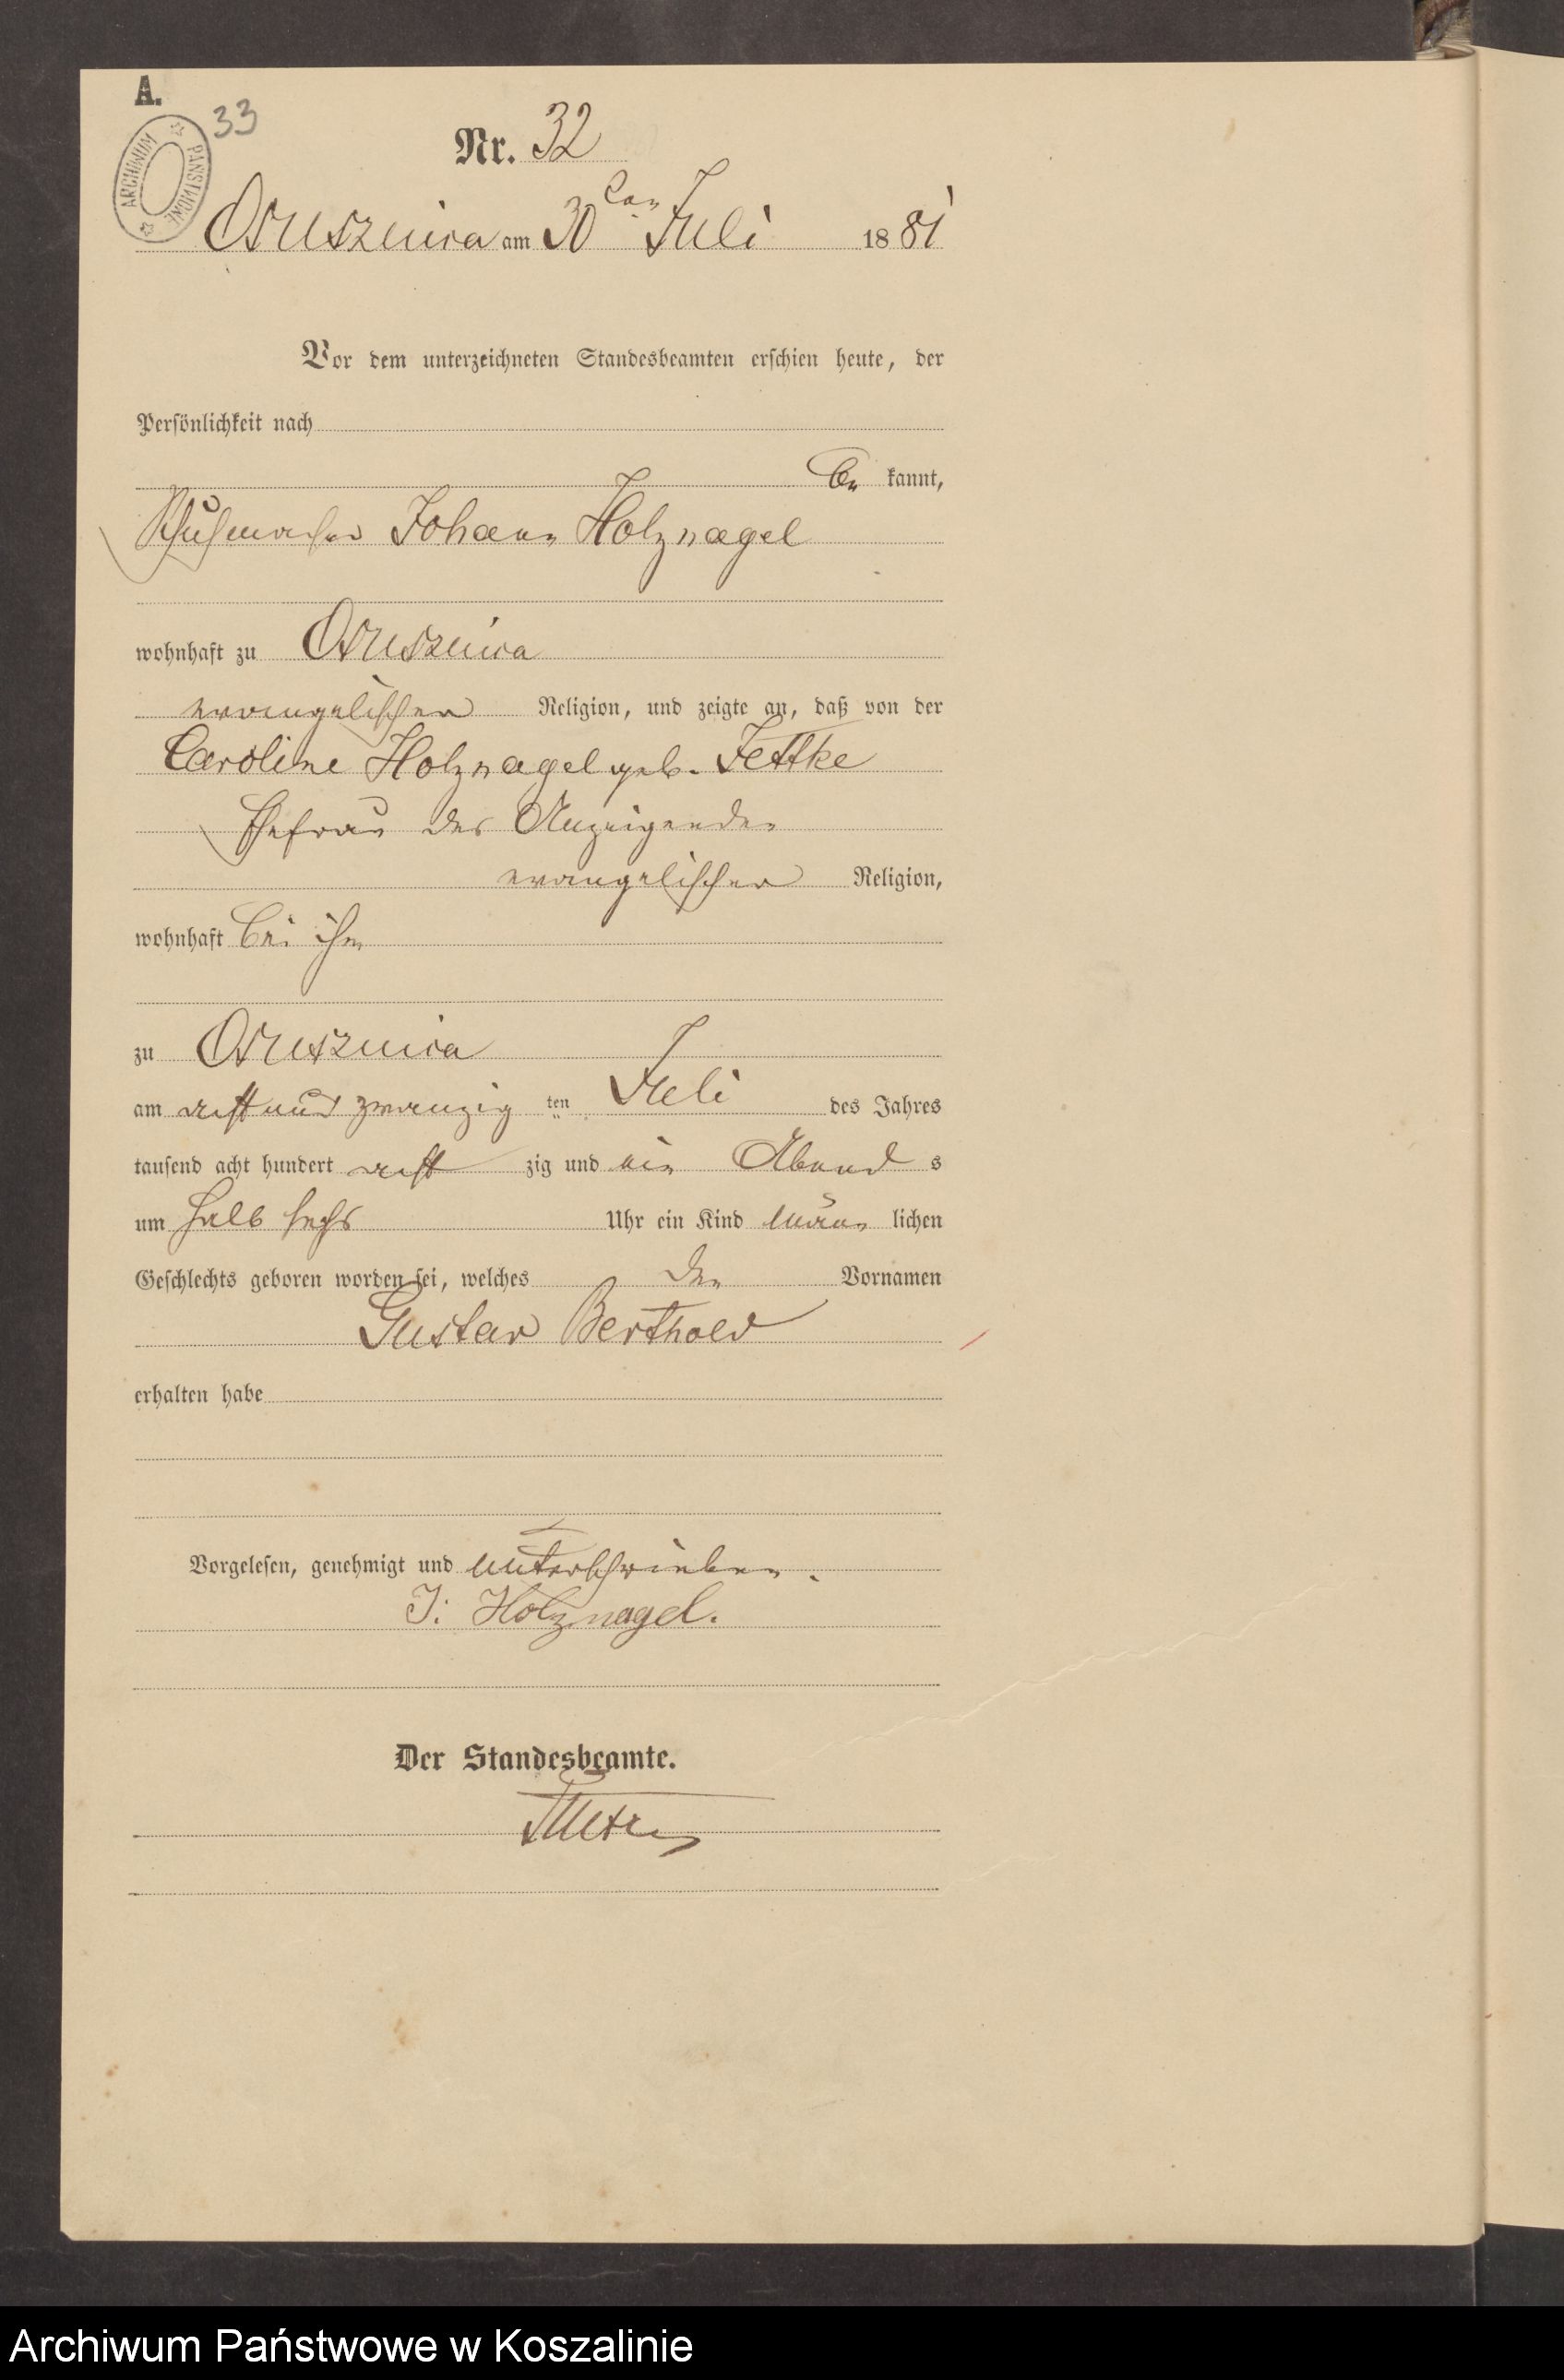 A.
33
ARCHIWUM PAŃSTWOWE
Nr. 32
Ostuszniça am 30ten Juli 1881
Vor dem unterzeichneten Standesbeamten erschien heute, der
Persönlichkeit nach
be kannt,
Schuhmacher Johann Holznagel
wohnhaft zu
evangelischer Religion, und zeigte an, daß von der
Caroline Holznagel geb. Fettke
Ehefrau des Anzeigenden
evangelischer Religion,
wohnhaft bei ihm
zu
am acht und zwanzig ten Juli des Jahres
tausend acht hundert acht zig und ein Abend s
um halb sechs Uhr ein Kind männ lichen
Geschlechts geboren worden sei, welches den Vornamen
Gustav Berthold
erhalten habe
Vorgelesen, genehmigt und unterschrieben.
J. Holznagel.
Der Standesbeamte.
Archiwum Państwowe w Koszalinie